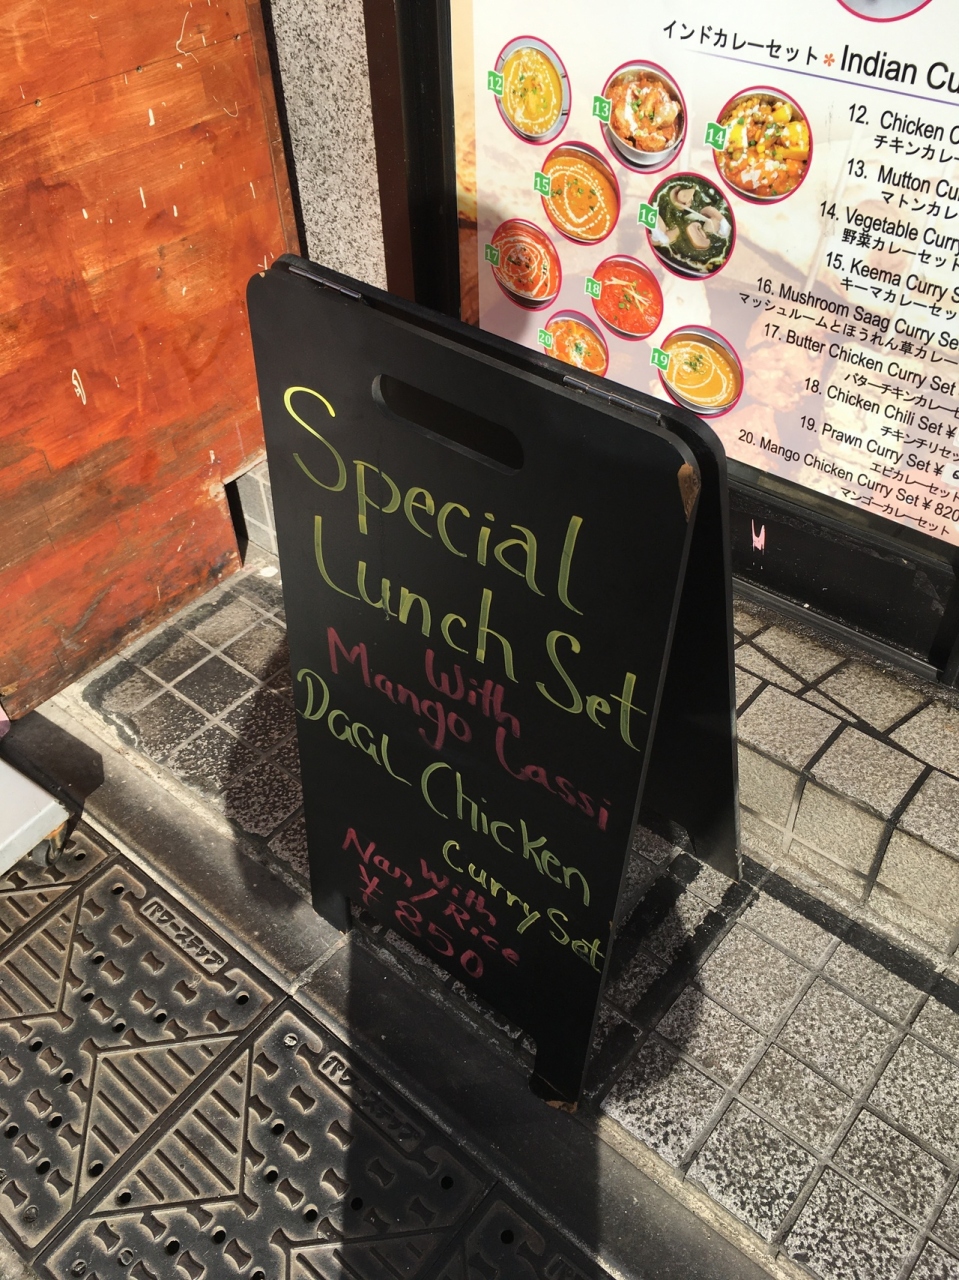 Special
Lunch Set
With
Mango Lassi
Daal Chicken
Curry Set
With
Nan/Rice
¥850
インドカレーセット * Indian
12
13
14
15
16
17
18
20
19
12. Chicken
チキンカレ
13. Mutton
マトンカレ
14. Vegetable Curry
野菜カレーセット
15. Keema Curry
キーマカレーセッ
16. Mushroom Saag Curry Set
マッシュルームとほうれん草カレー
17. Butter Chicken Curry Set
バターチキンカレー
18. Chicken Chili Set ¥
チキンチリセッ
19. Prawn Curry Set ¥
エビカレーセット
20. Mango Chicken Curry Set ¥820
マンゴーカレーセット
パワーステップ
パワーステップ